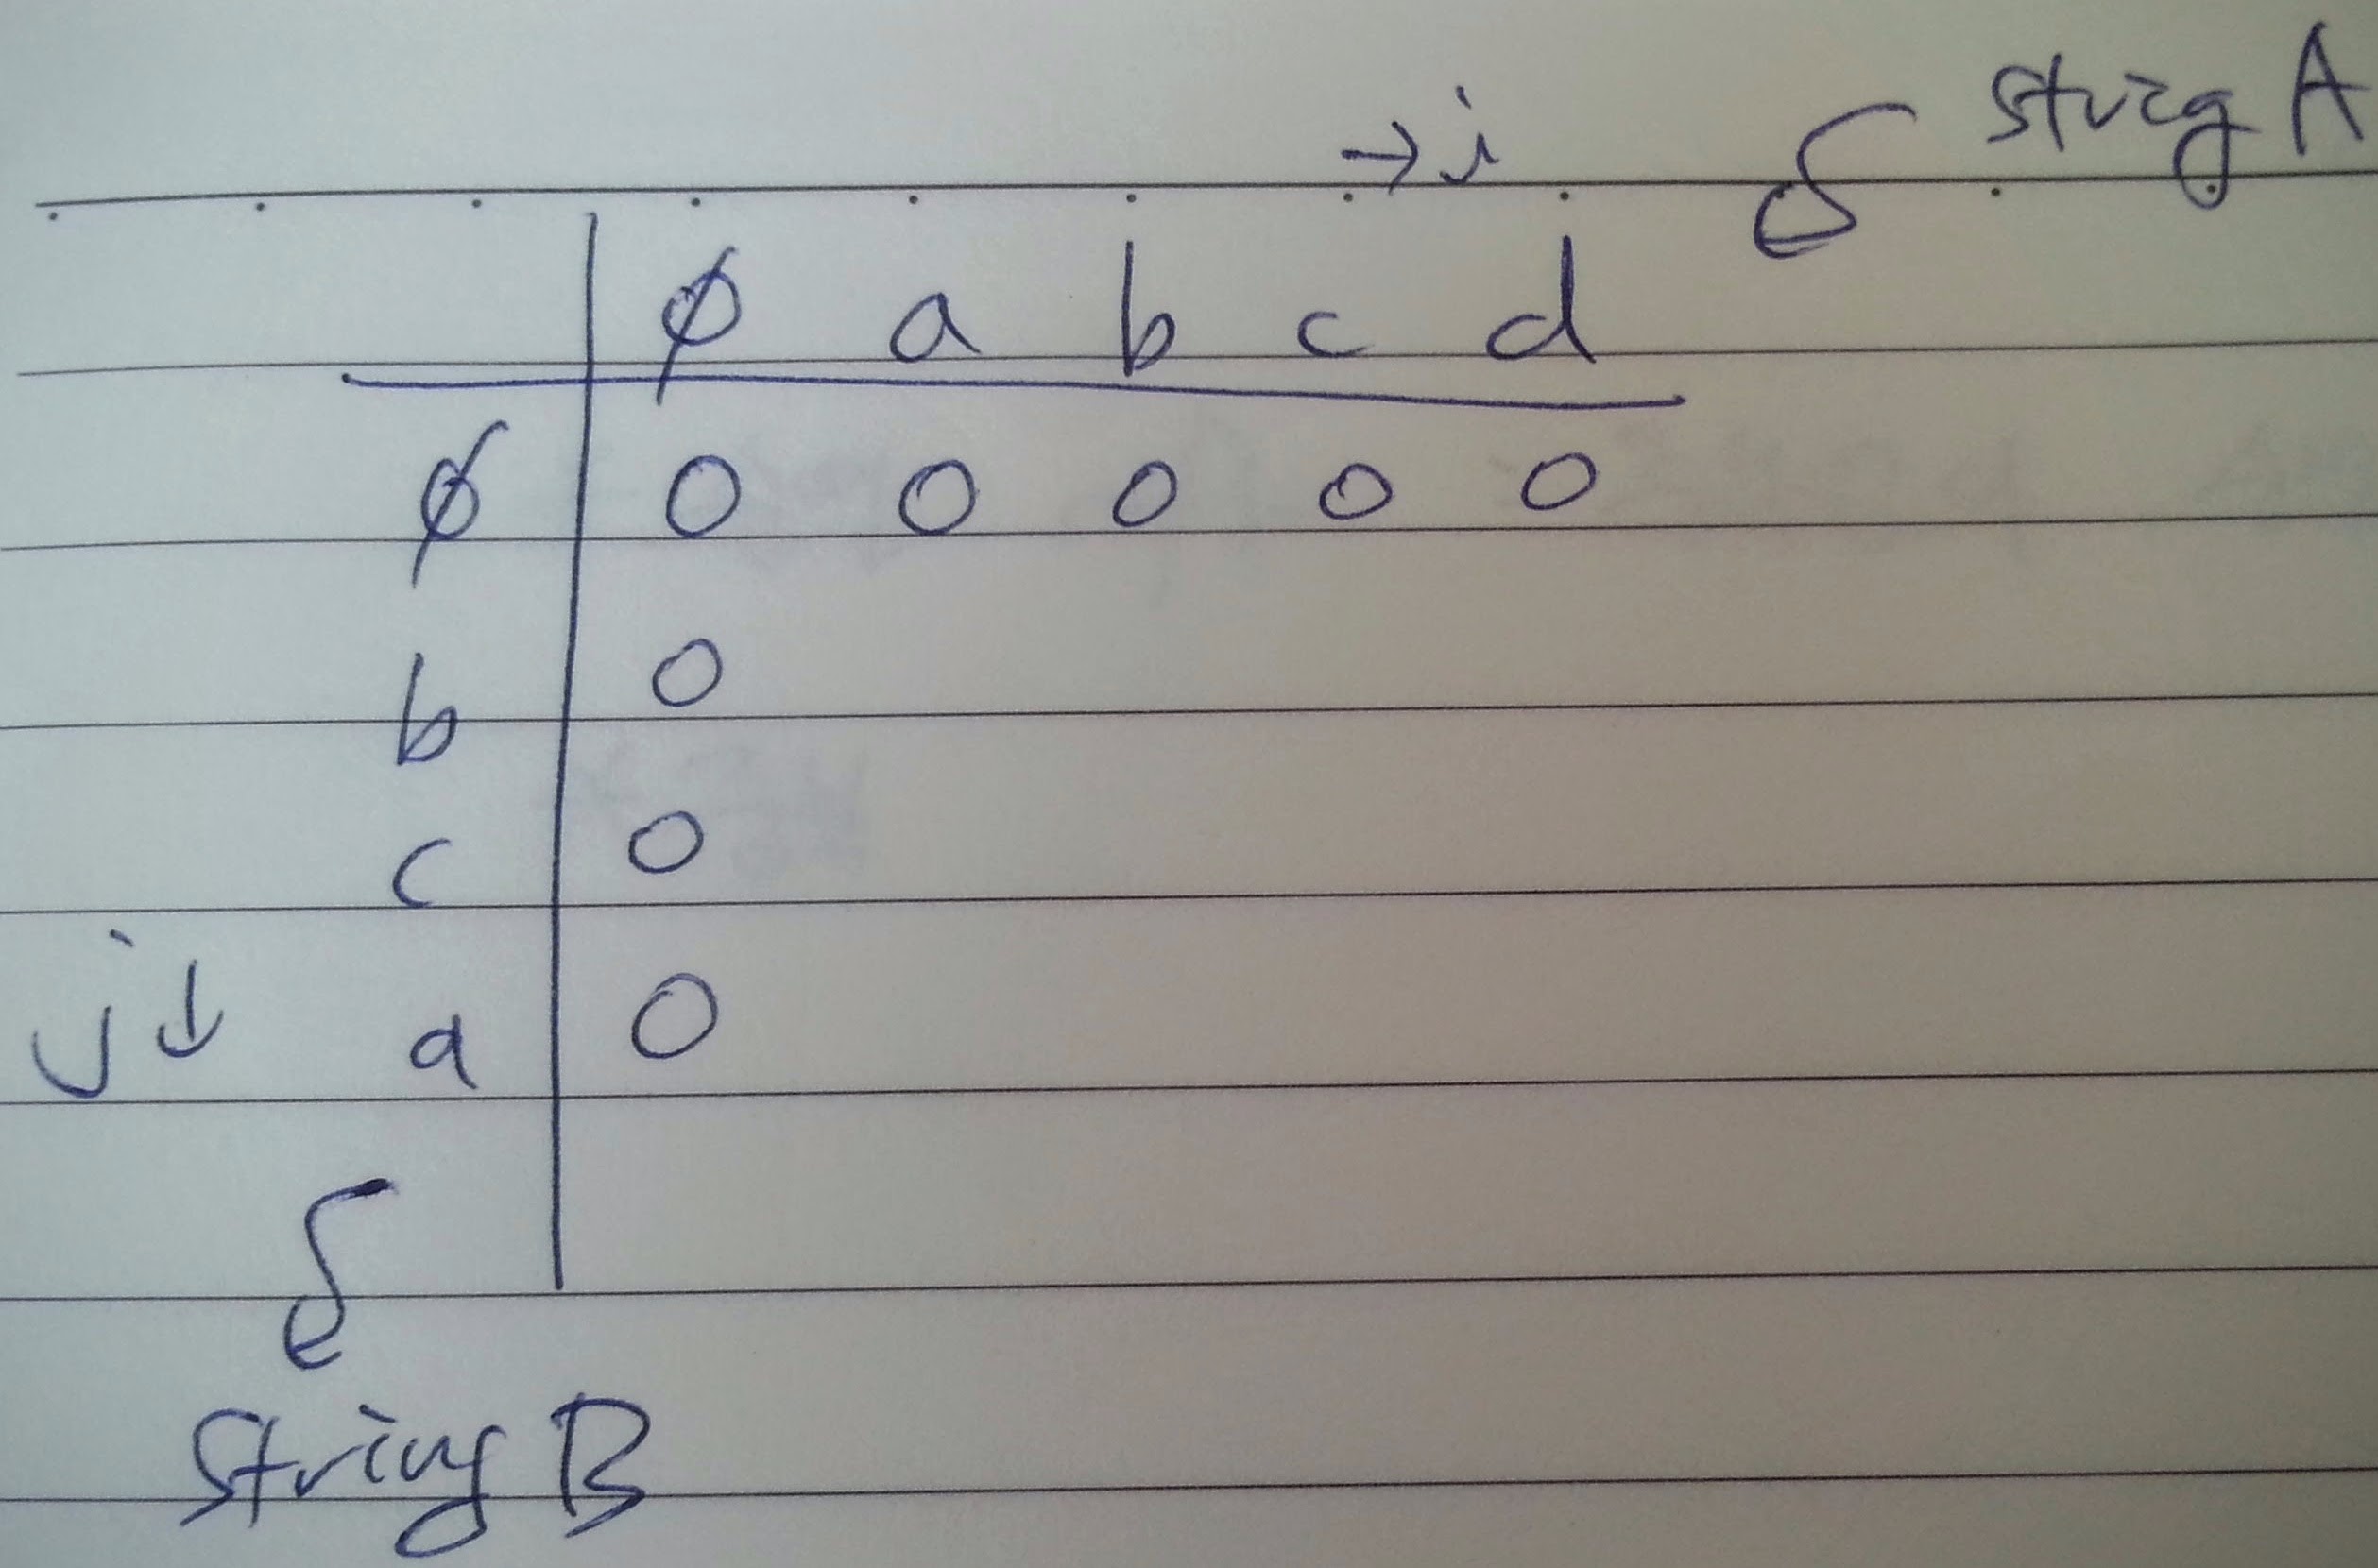 → i String A
φ a b c d
φ 0 0 0 0 0
b 0
c 0
j ↓ a 0
String B